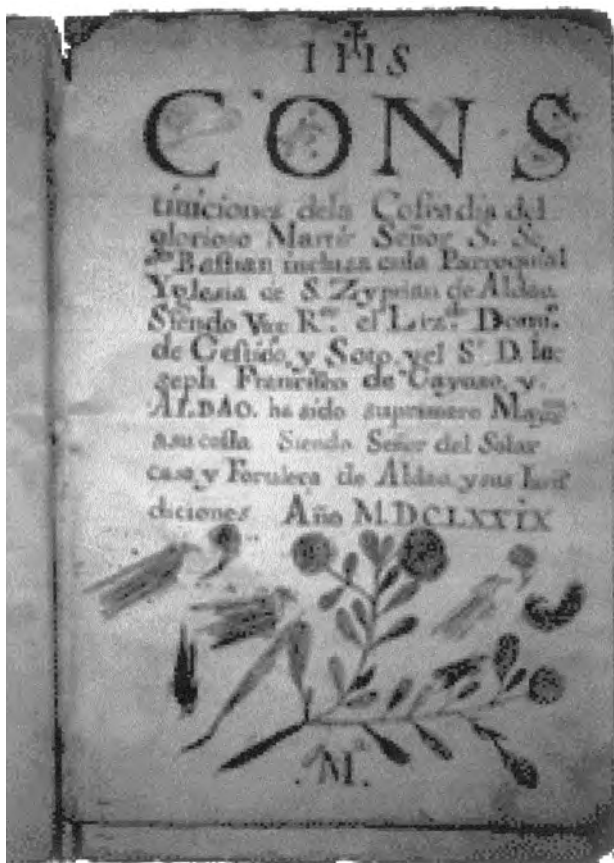 IHS
CONS
tituiciones dela Cofradia del
glorioso Martir Señor S. Se
Bastian inclusa enla Parroquial
Yglesia de S. Zyprian de Aldao.
Siendo Vro R.ᵒʳ el Liz.ᵈᵒ Domi.ᵒ
de Cestido, y Soto, y el S.ʳ D. Io
seph Francisco de Cayaso, y.
ALDAO. ha sido suprimero May.ᵐᵒ
asu costa Siendo Señor del Solar
casa, y Fortaleca de Aldao, y sus Iuris
diciones Año M.DCLXXIX
.M.ᵃ